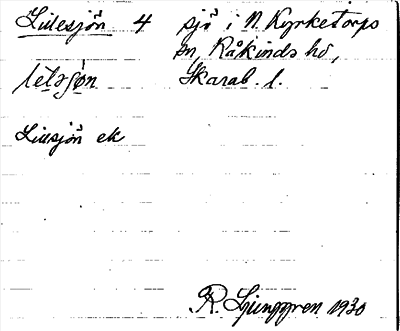 Lillesjön 4 sjö i N. Kyrketorps
sn, Kåkinds hd,
Skarab. l.
Lillsjön ek
R. Ljunggren 1930